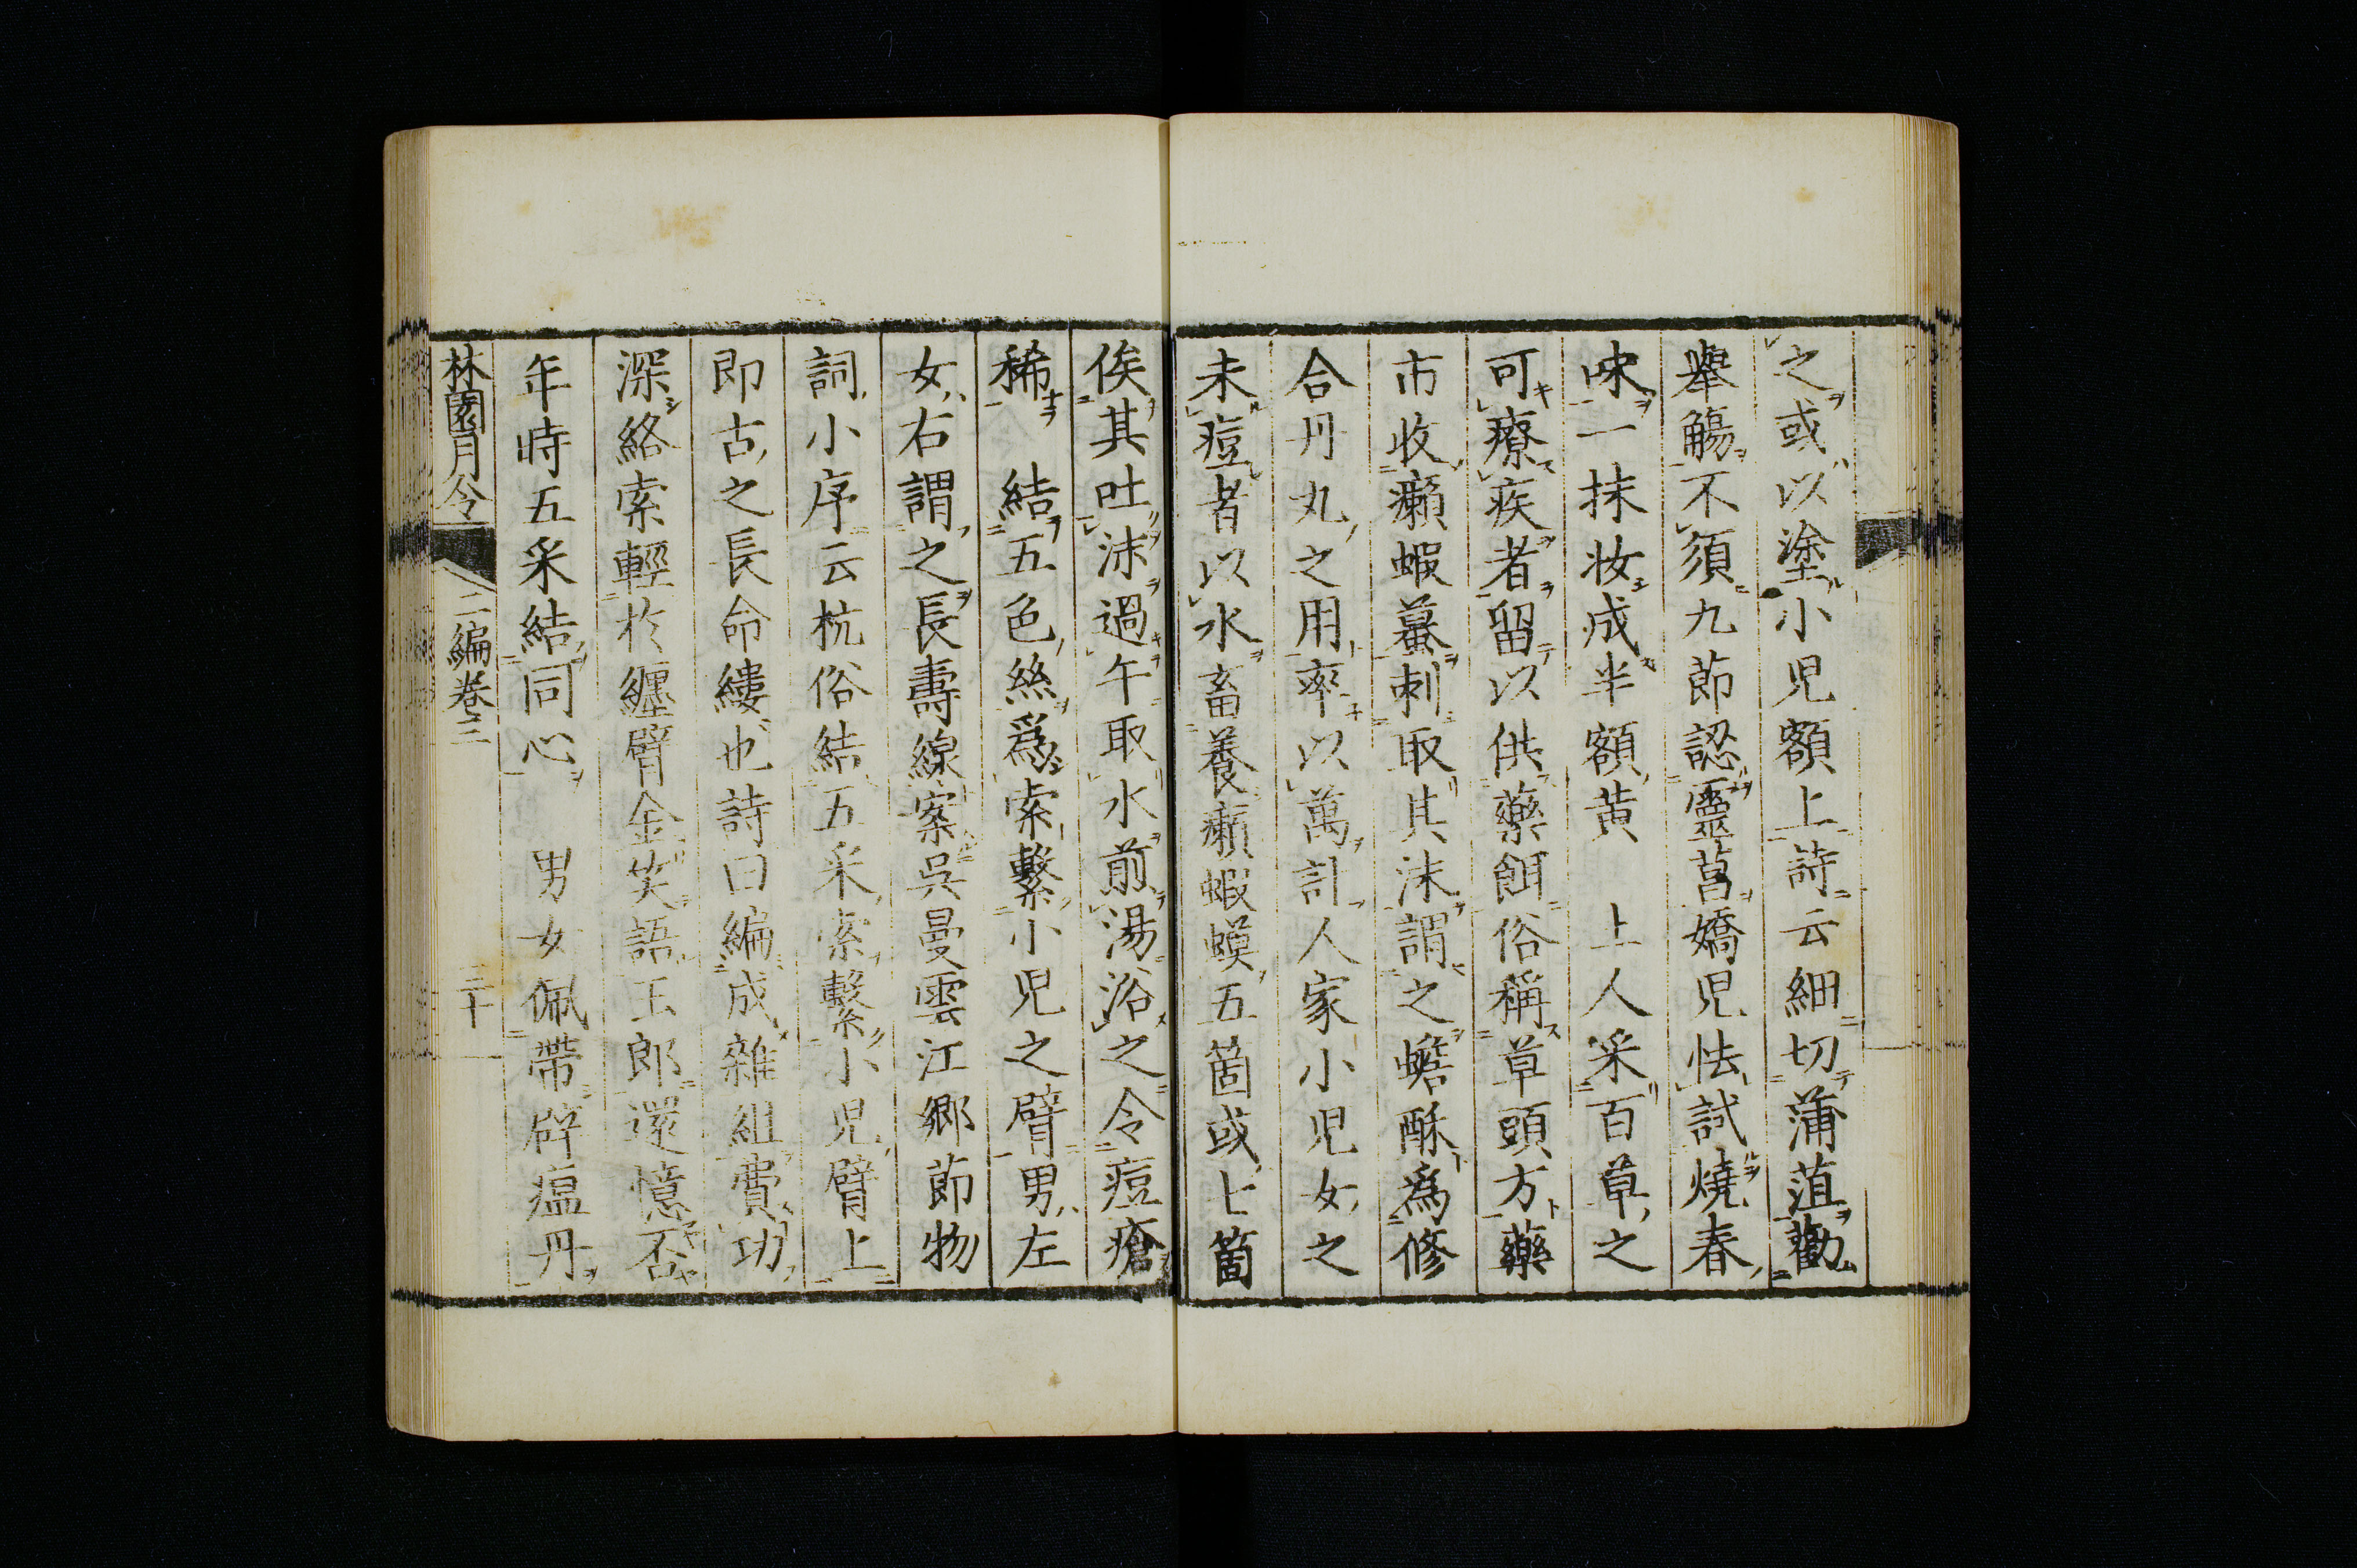 之或以塗小児額上詩云細切蒲菹勸
舉觴不須九節認靈菖嬌児怯試燒春
味一抹妆成半額黃　土人采百草之
可療疾者留以供藥餌俗稱草頭方藥
市收癩蝦蟇刺取其沫謂之蟾酥爲修
合丹丸之用率以萬計人家小児女之
未痘者以水畜養癩蝦蟆五箇或七箇
俟其吐沫過午取水煎湯浴之令痘瘡
稀　結五色絲爲索繫小児之臂男左
女右謂之長壽線案呉曼雲江郷節物
詞小序云杭俗結五采索繫小児臂上
即古之長命縷也詩曰編成雜組費功
深絡索輕於纏臂金笑語玉郎還憶否
年時五采結同心　男女佩帶辟瘟丹
林園月令　二編卷三　三十